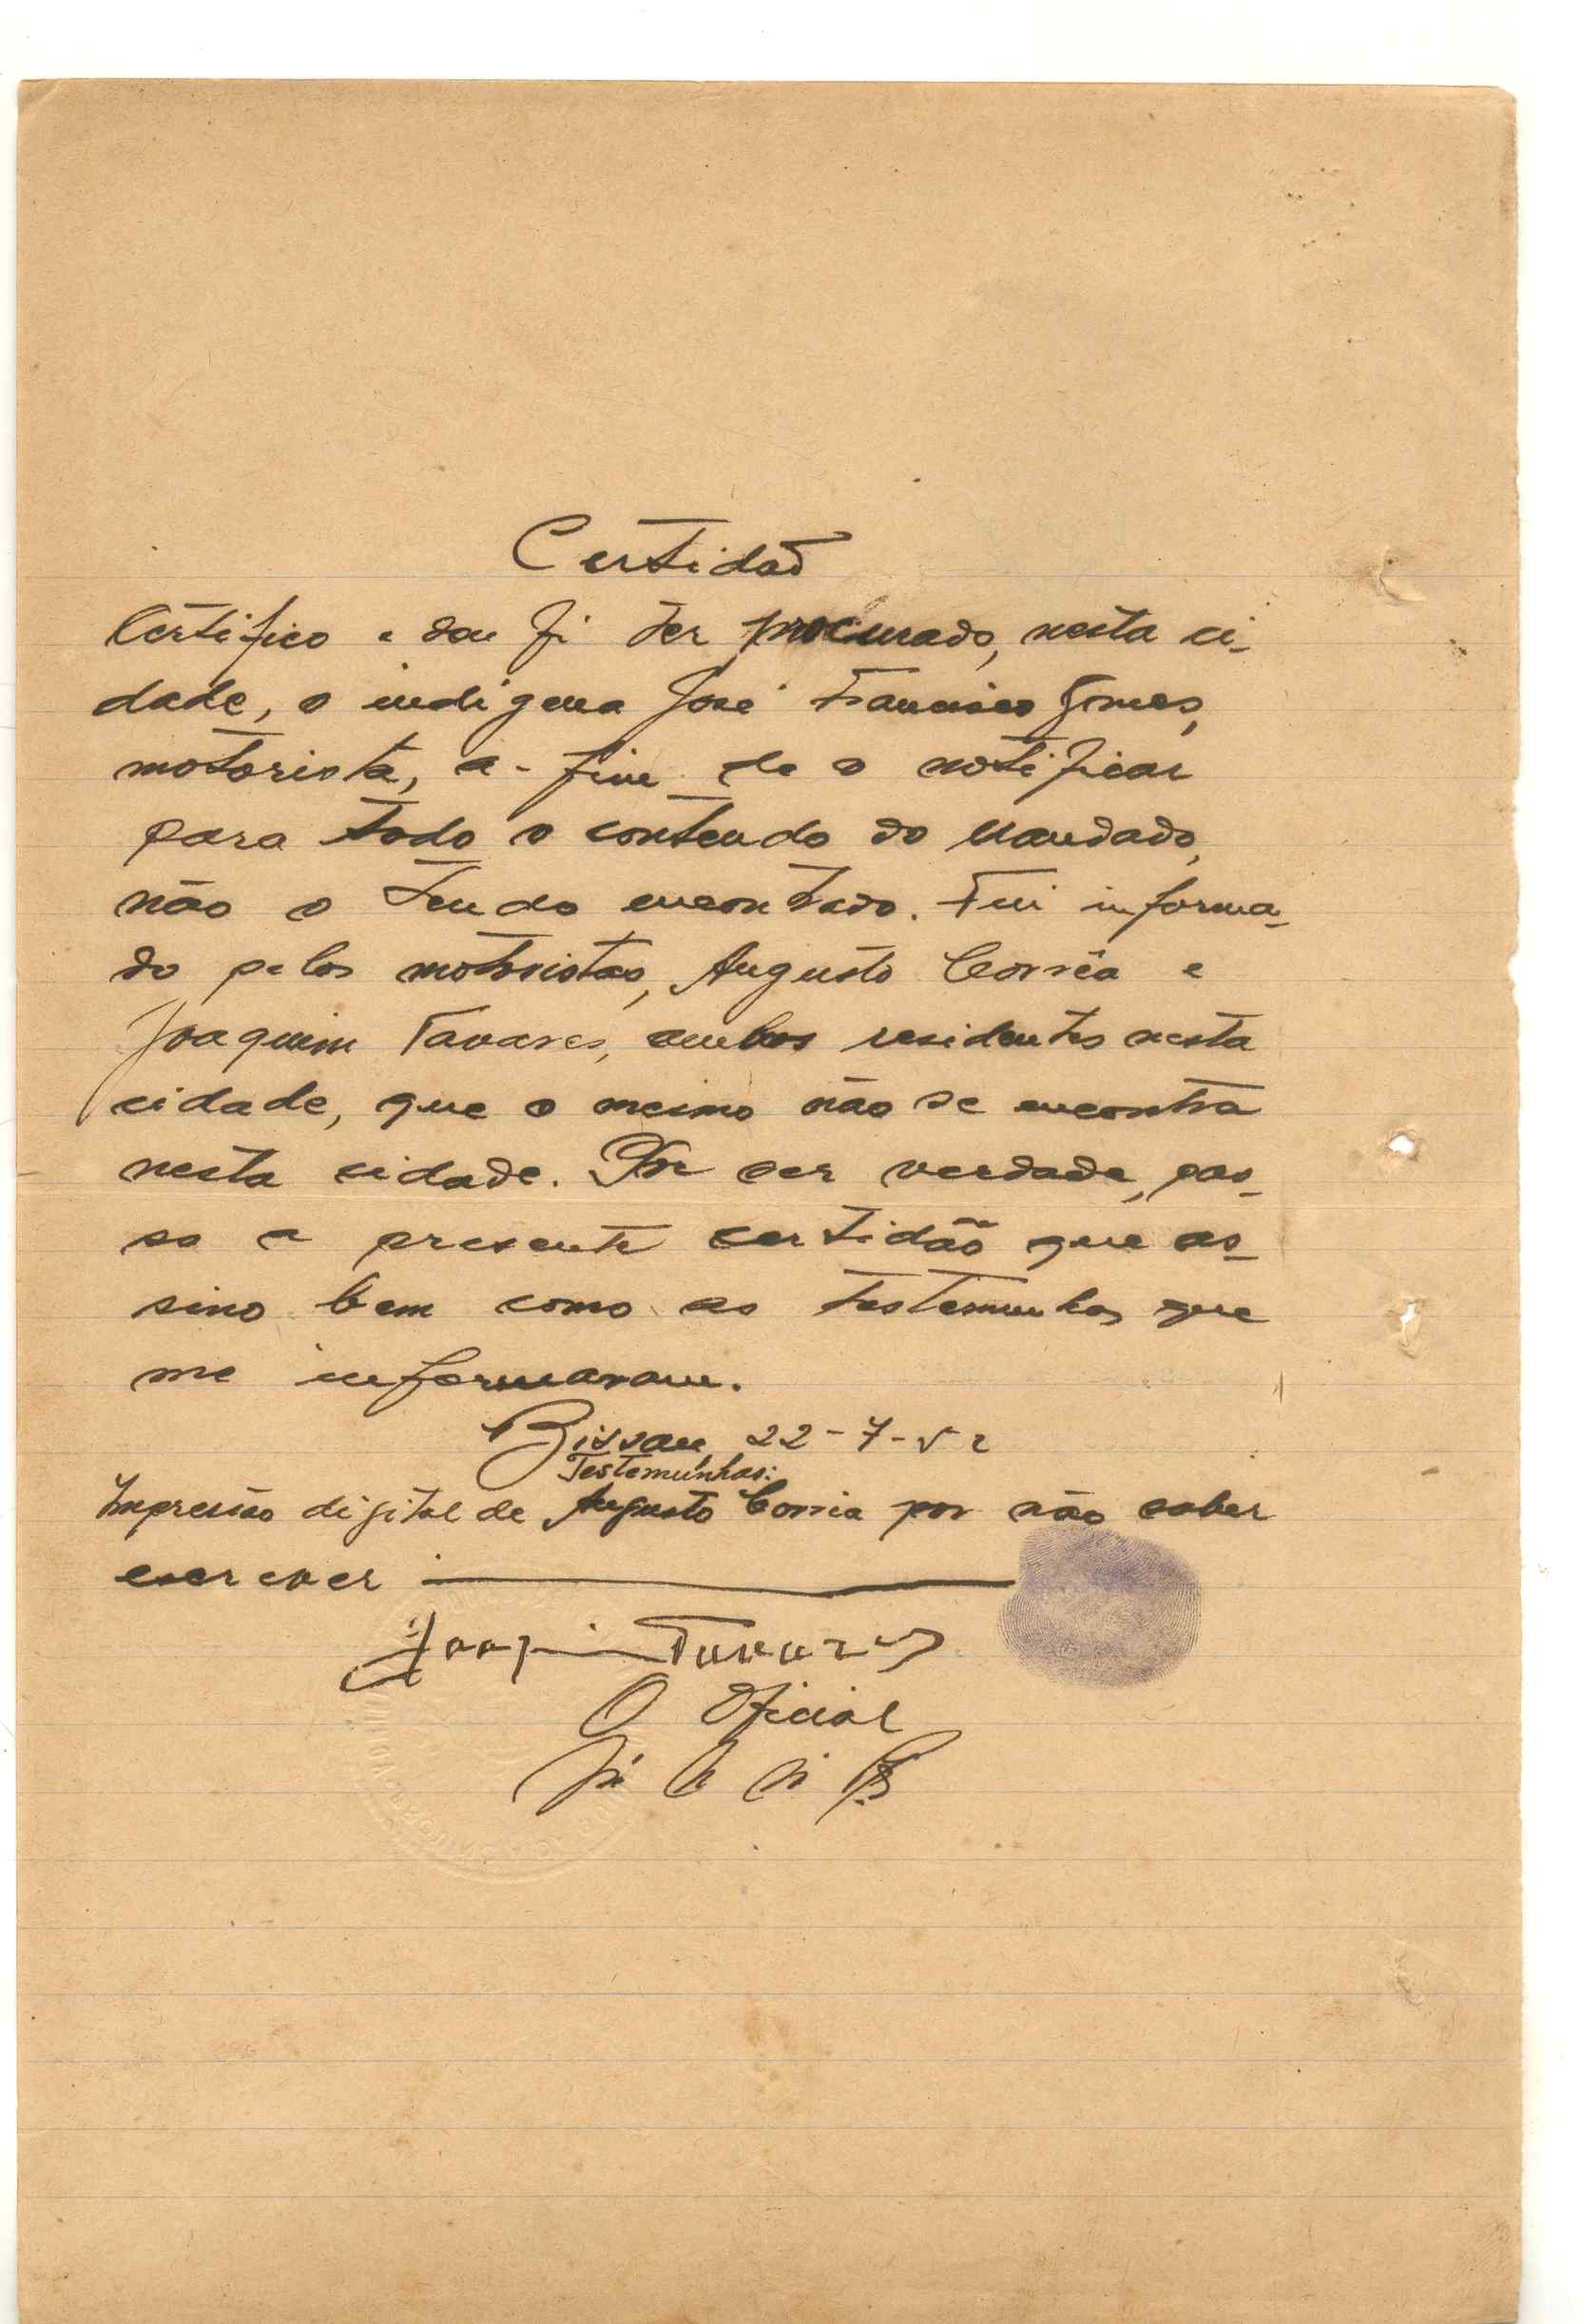 Certidão
Certifico e dou fé ter procurado, nesta ci-
dade, o indigena José Francisco Gomes,
motorista, a-fim de o notificar
para todo o contendo do mandado,
não o tendo encontrado. Fui informa-
do pelos motoristas, Augusto Corrêa e
Joaquim Tavares, ambos residentes nesta
cidade, que o mesmo não se encontra
nesta cidade. Por ser verdade, pas-
so a presente certidão que as-
sino bem como as testemunhas que
me informaram.
Bissau, 22-7-52
Testemunhas:
Impressão digital de Augusto Correia por não saber
escrever
Joaquim Tavares
O Oficial